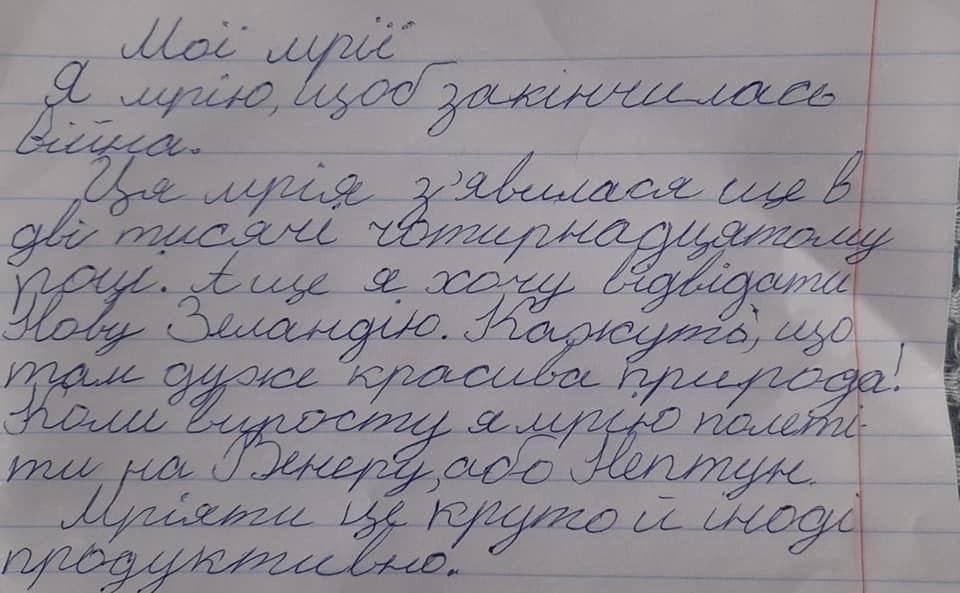 Мої мрії
Я мрію, щоб закінчилась
війна.
Ця мрія з'явилася ще в
дві тисячі чотирнадцятому
році. А ще я хочу відвідати
Нову Зеландію. Кажуть, що
там дуже красива природа!
Коли виросту я мрію полеті-
ти на Венеру, або Нептун.
Мріяти це круто й іноді
продуктивно.